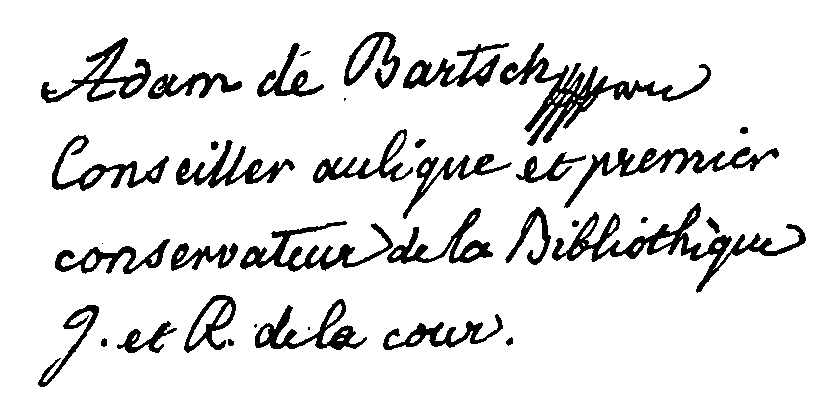 Adam de Bartsch
Conseiller aulique et premier
conservateur de la Bibliothèque
J. et R. de la cour.